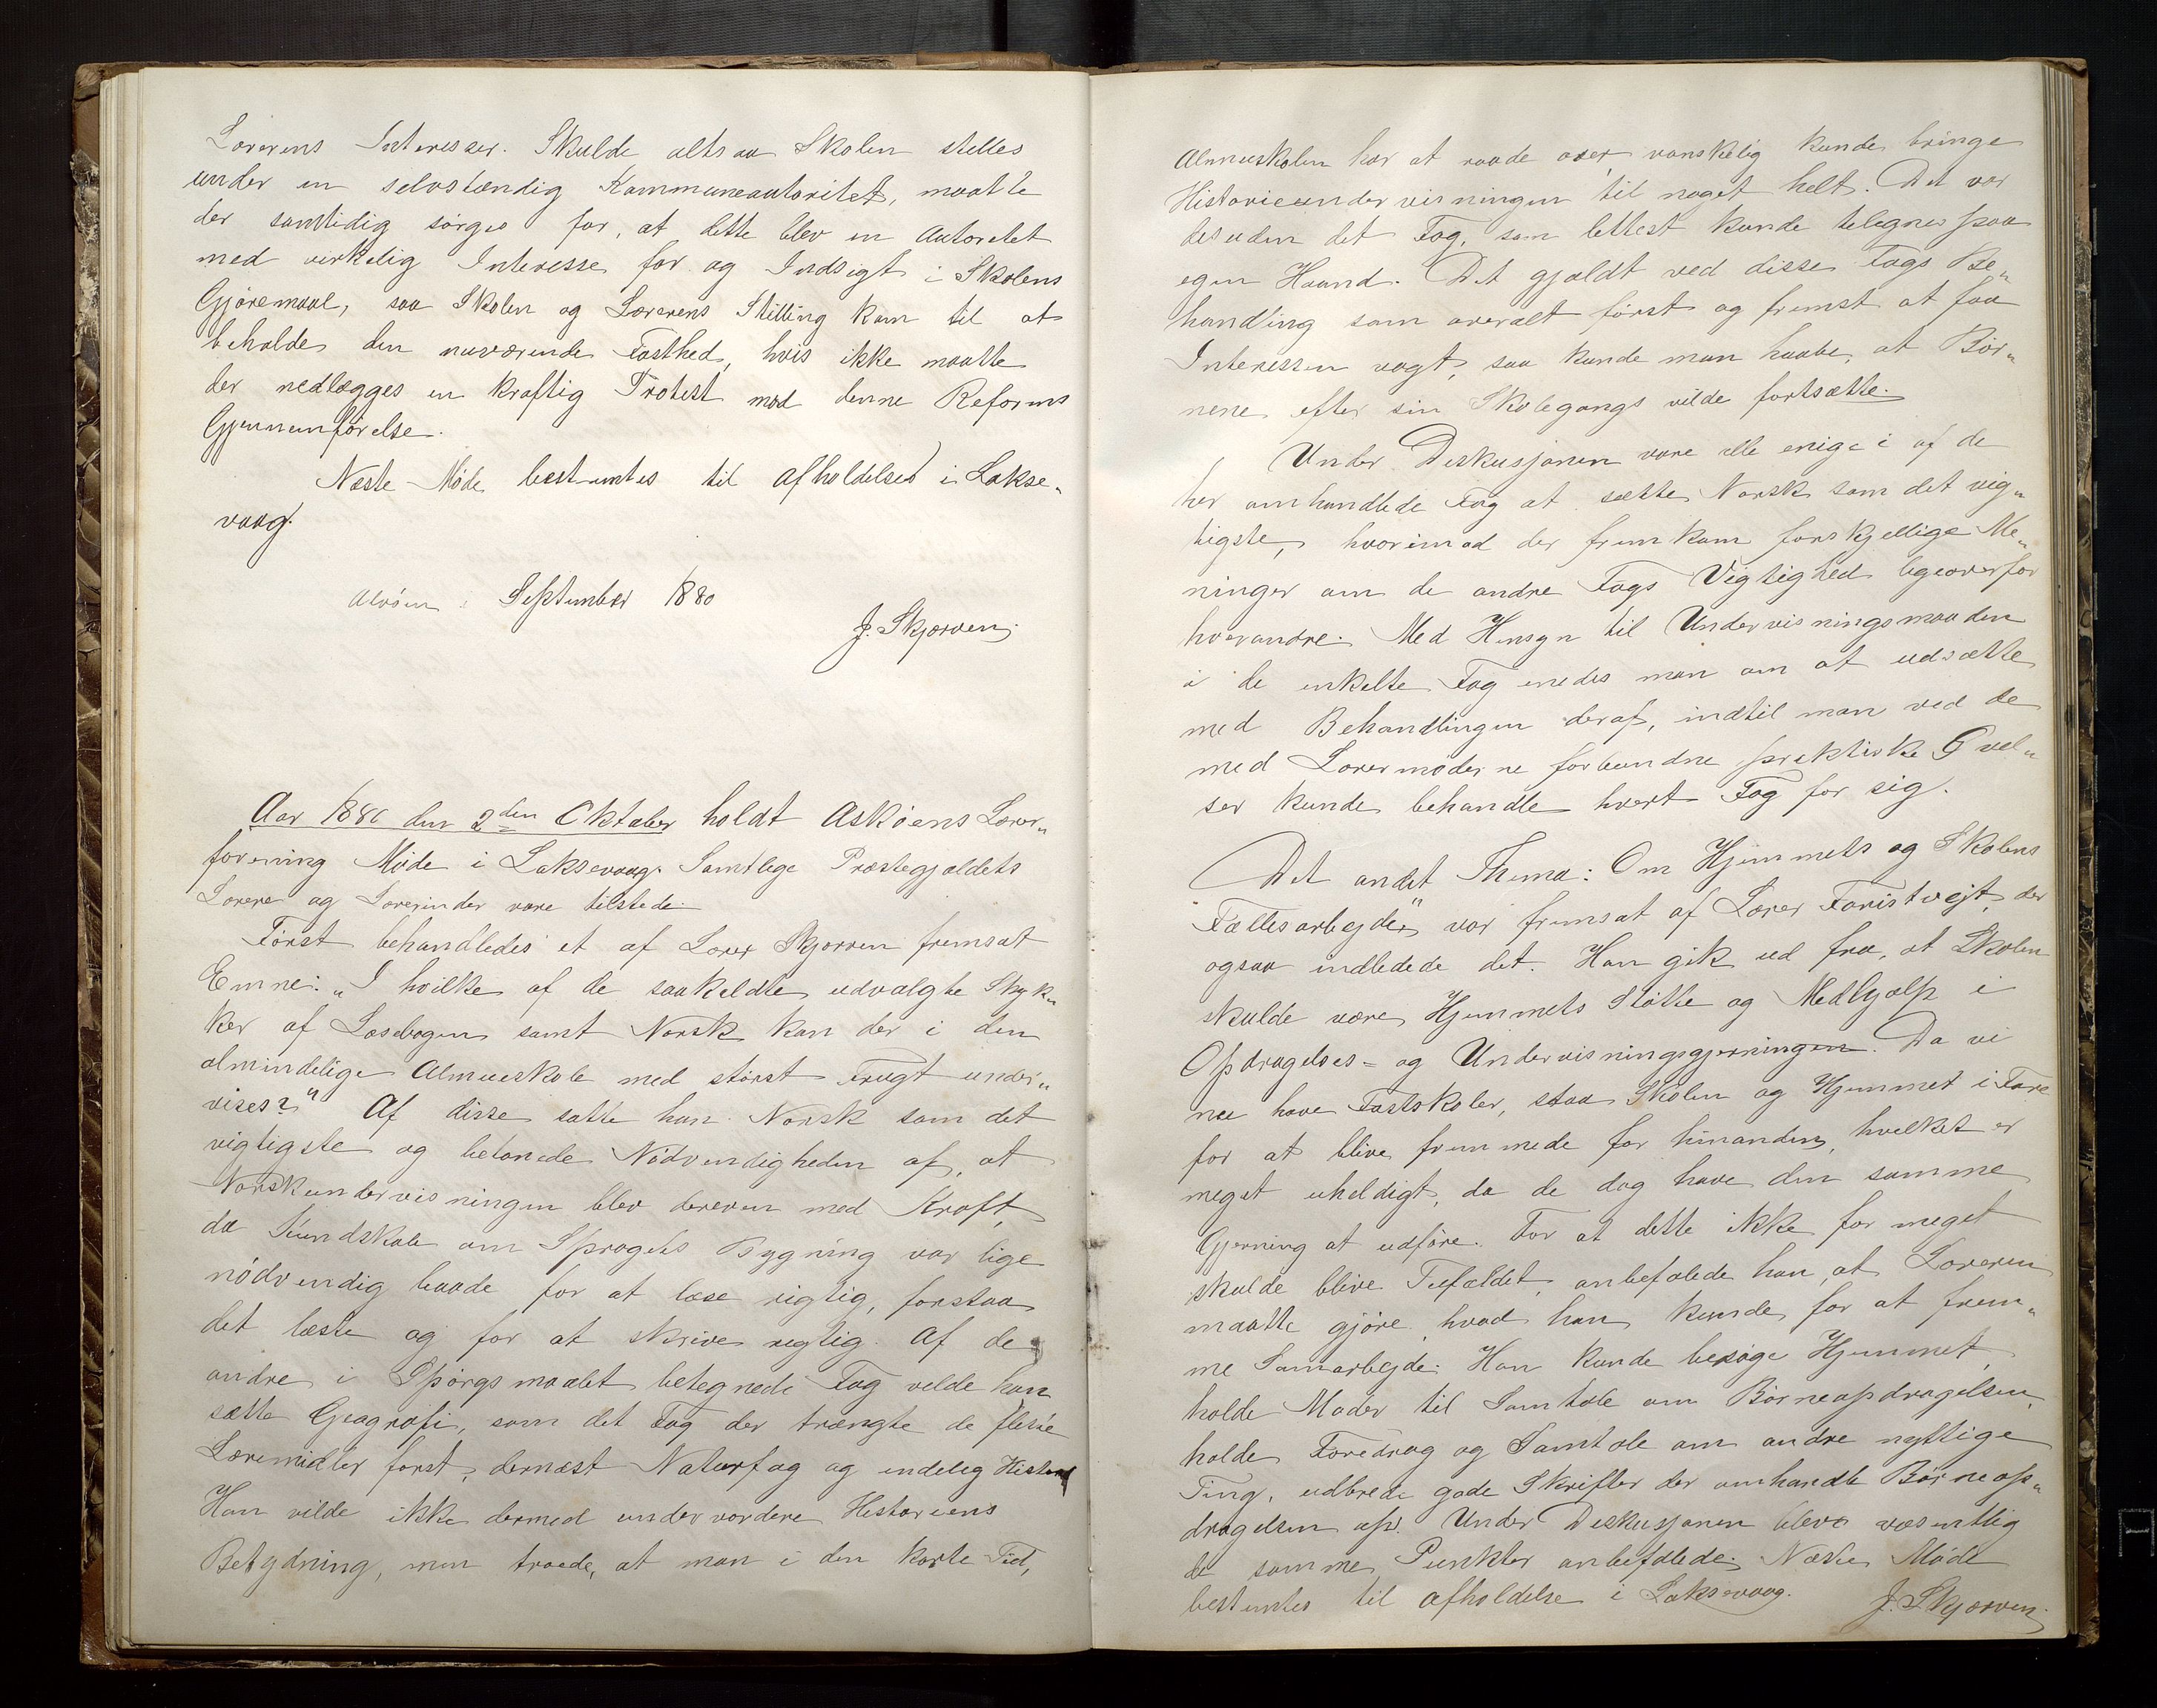 Lærerens Interesser. Skulde altsaa Skolen stilles
under en selvstændig Kommuneautoritet, maatte
der samtidig sörges for, at dette blev en Autoritet
med virkelig Interesse for og Indsigt i Skolens
Gjöremaal, saa Skolen og Lærerens Stilling kom til at
beholde den nuværende Fasthed, hvis ikke maatte
der nedlægges en kraftig Protest mod denne Reforms
Gjennemförelse.
Næste Möde bestemtes til Afholdelse i Lakse„
vaag.
Alvöen i September 1880
J. Skjærven.
Aar 1880 den 2den Oktober holdt Asköens Lærer„
forening Möde i Laksevaag. Samtlige Præstegjældets
Lærere og Lærerinder vare tilstede.
Först behandledes et af Lærer Skjærven fremsat
Emne: „I hvilke af de saakaldte udvalgte Styk„
ker af Læsebogen samt Norsk kan der i den
almindelige Almueskole med störst Frugt under„
vises?" Af disse satte han Norsk som det
vigtigste og betonede Nödvendigheden af, at
Norskundervisningen blev dreven med Kraft,
da Kundskab om Sprogets Bygning var lige
nödvendig baade for at læse rigtig, forstaa
det læste og for at skrive rigtig. Af de
andre i Spörgsmaalet betegnede Fag vilde han
sætte Geografi, som det Fag der trængte de fleste
Læremidler först, dernæst Naturfag og endelig Historie
Han vilde ikke dermed undervurdere Historiens
Betydning, men troede, at man i den korte Tid,
Almueskolen har at raade over vanskelig kunde bringe
Historieundervisningen til noget helt. Det var
desuden det Fag, som lettest kunde tilegnes paa
egen Haand. Det gjældt ved disse Fags Be„
handling som overalt först og fremst at faa
Interessen vagt, saa kunde man haabe, at Bör„
nene efter sin Skolegang vilde fortsætte.
Under Diskusjonen vare alle enige i af de
her omhandlede Fag at sætte Norsk som det vig„
tigste, hvorimod der fremkom forskjellige Me„
ninger om de andre Fags Vigtighed ligeoverfor
hverandre. Med Hensyn til Undervisningsmaaden
i de enkelte Fag enedes man om at udsætte
med Behandlingen deraf, indtil man ved de
med Lærermøderne forbundne praktiske Övel„
ser kunde behandle hvert Fag for sig.
Det andet Thema: Om Hjemmets og Skolens
Fællesarbejde" var fremsat af Lærer Faristvejt, der
ogsaa indledede det. Han gik ud fra, at Skolen
skulde være Hjemmets Stötte og Medhjælp i
Opdragelses- og Undervisningsgjerningen. Da vi
nu have Fastskoler, staa Skolen og Hjemmet i Fare
for at blive fremmede for hinanden, hvilket er
meget uheldigt, da de dog have den samme
Gjerning at udföre. For at dette ikke for meget
skulde blive Tilfældet, anbefalede han, at Læreren
maatte gjöre, hvad han kunde, for at frem„
me Samarbejde. Han kunde besöge Hjemmet,
holde Møder til Samtale om Börneopdragelsen,
holde Foredrag og Samtale om andre nyttige
Ting, udbrede gode Skrifter der omhandle Börneop„
dragelsen osv. Under Diskusjonen blev væsentlig
de samme Punkter anbefalede. Næste Möde
bestemtes til Afholdelse i Laksevaag.
J. Skjærven.